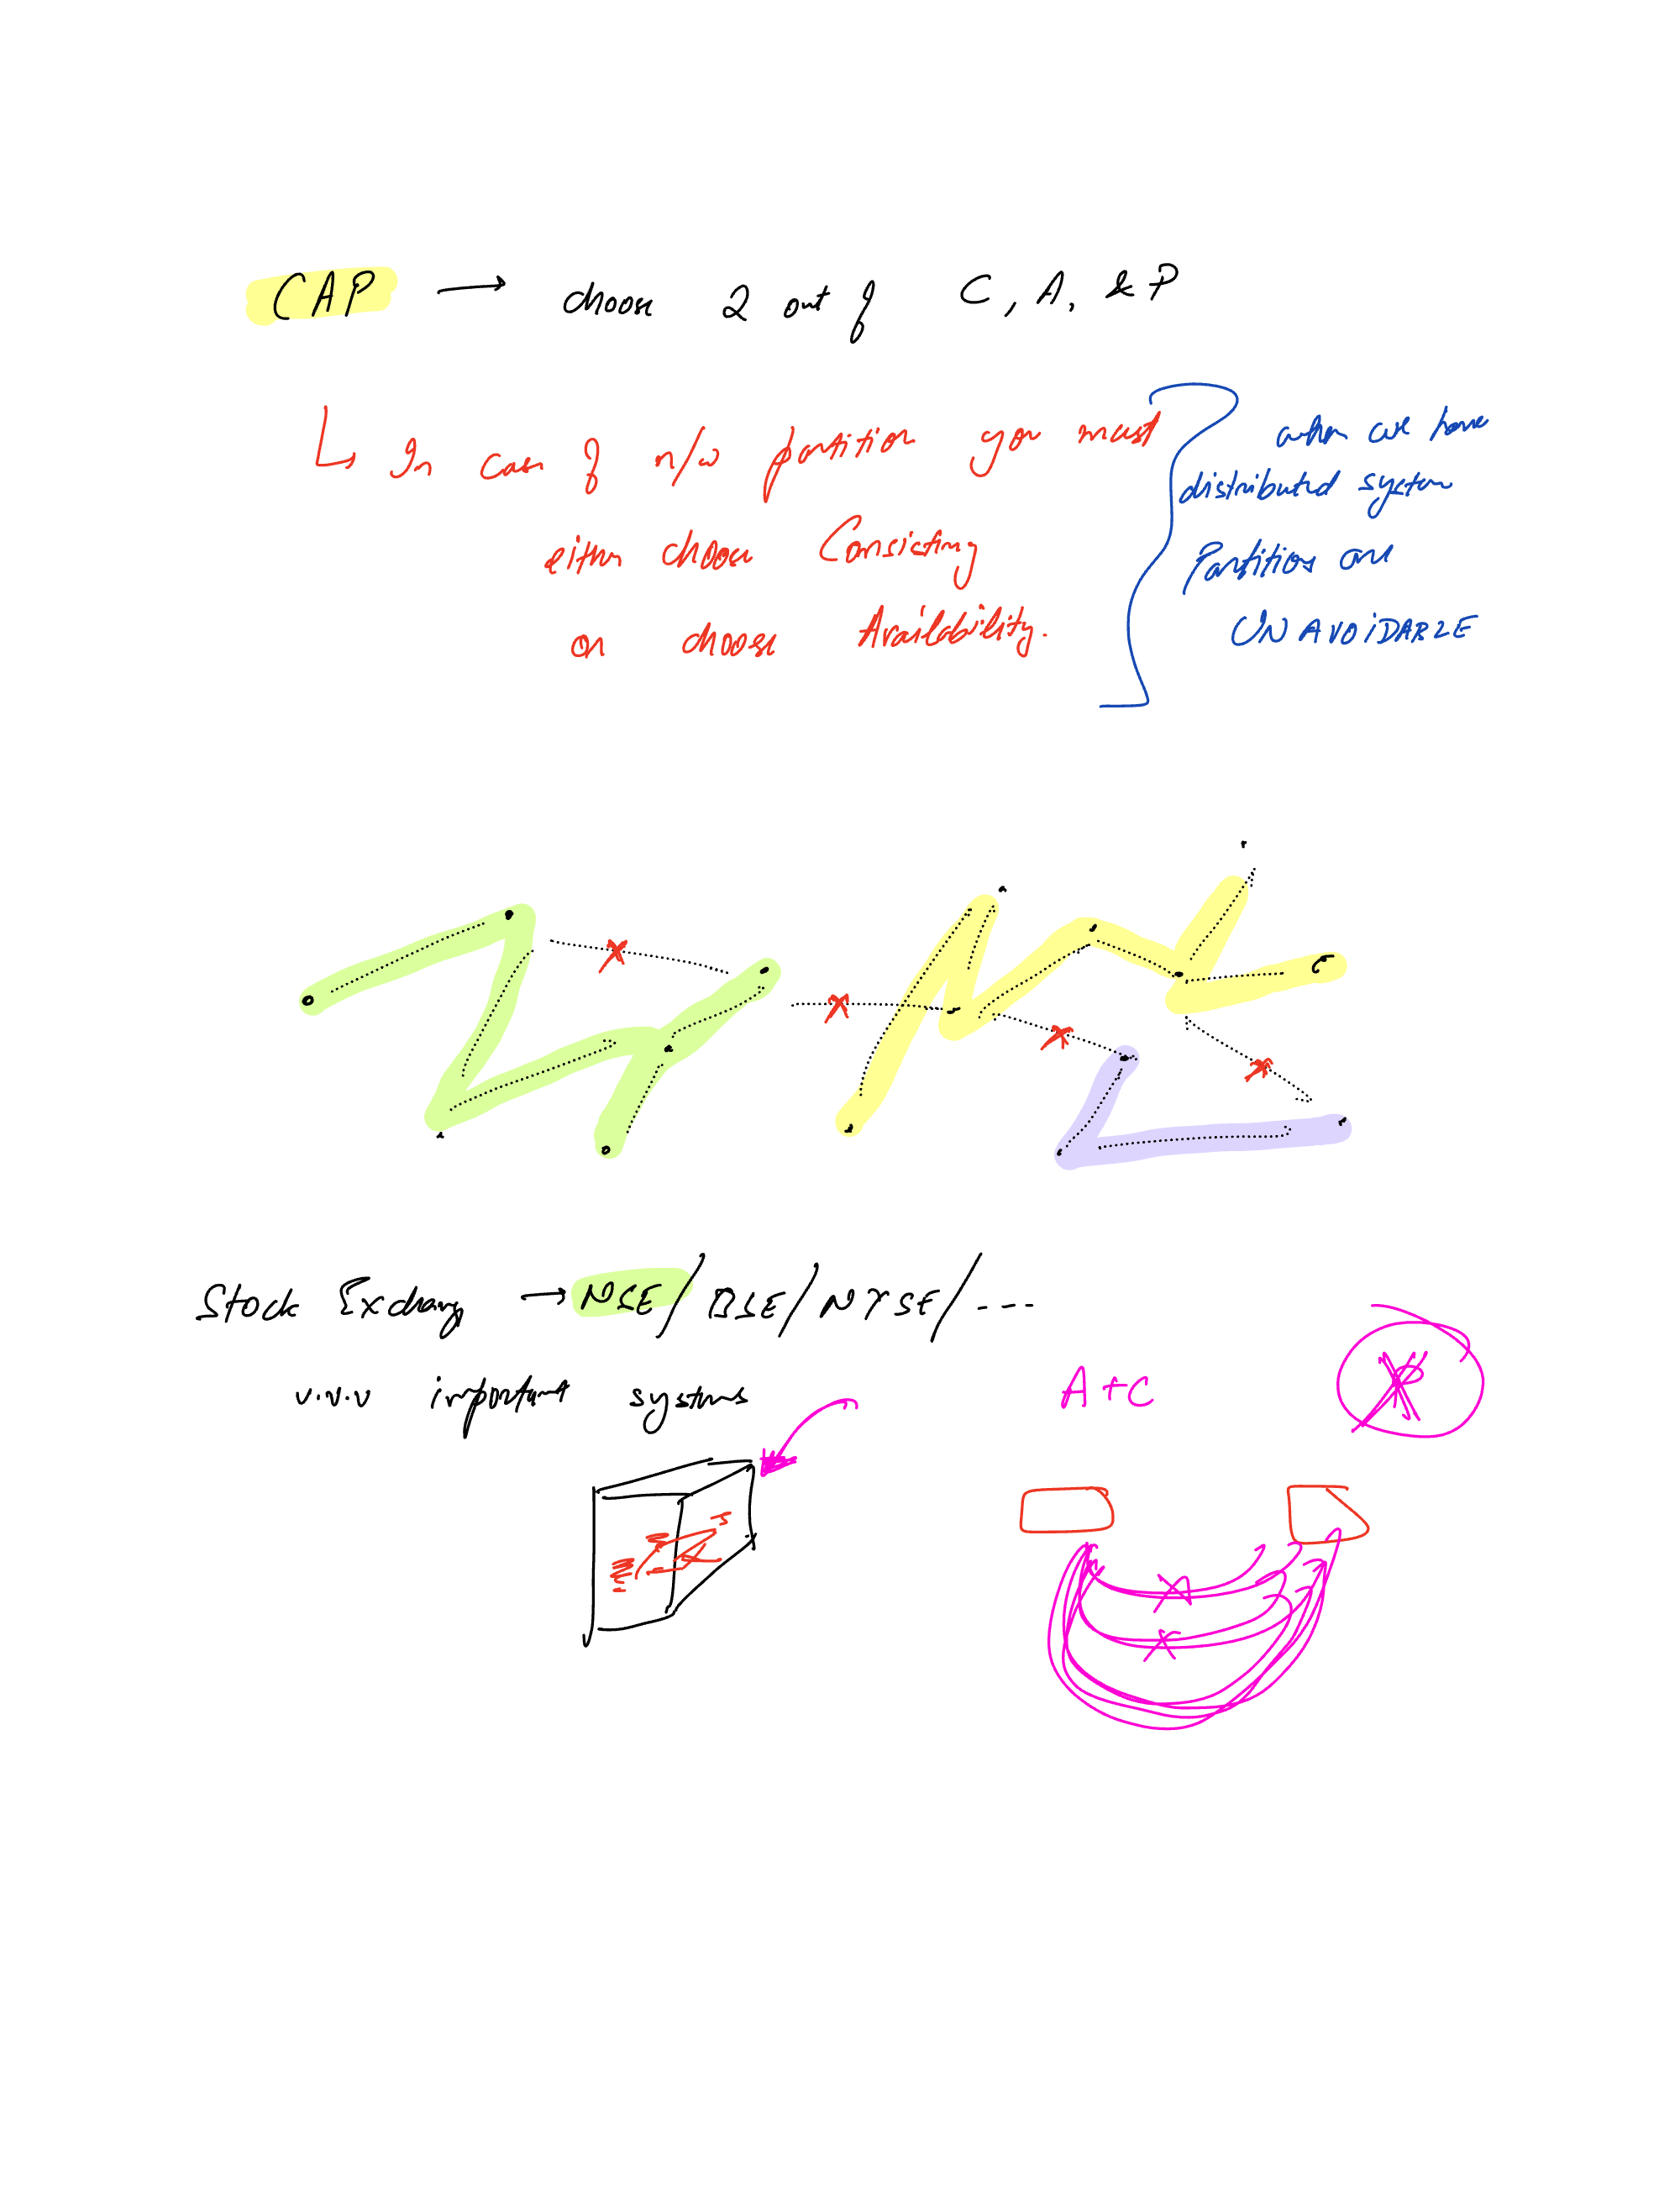 CAP → choose 2 out of C, A, & P
↳ In case of n/w partition you must
either choose Consistency
or choose Availability.
when we have
distributed system
Partitions are
UNAVOIDABLE
Stock Exchange → NSE/BSE/NYSE/---
v.v.v important systems
A+C
P